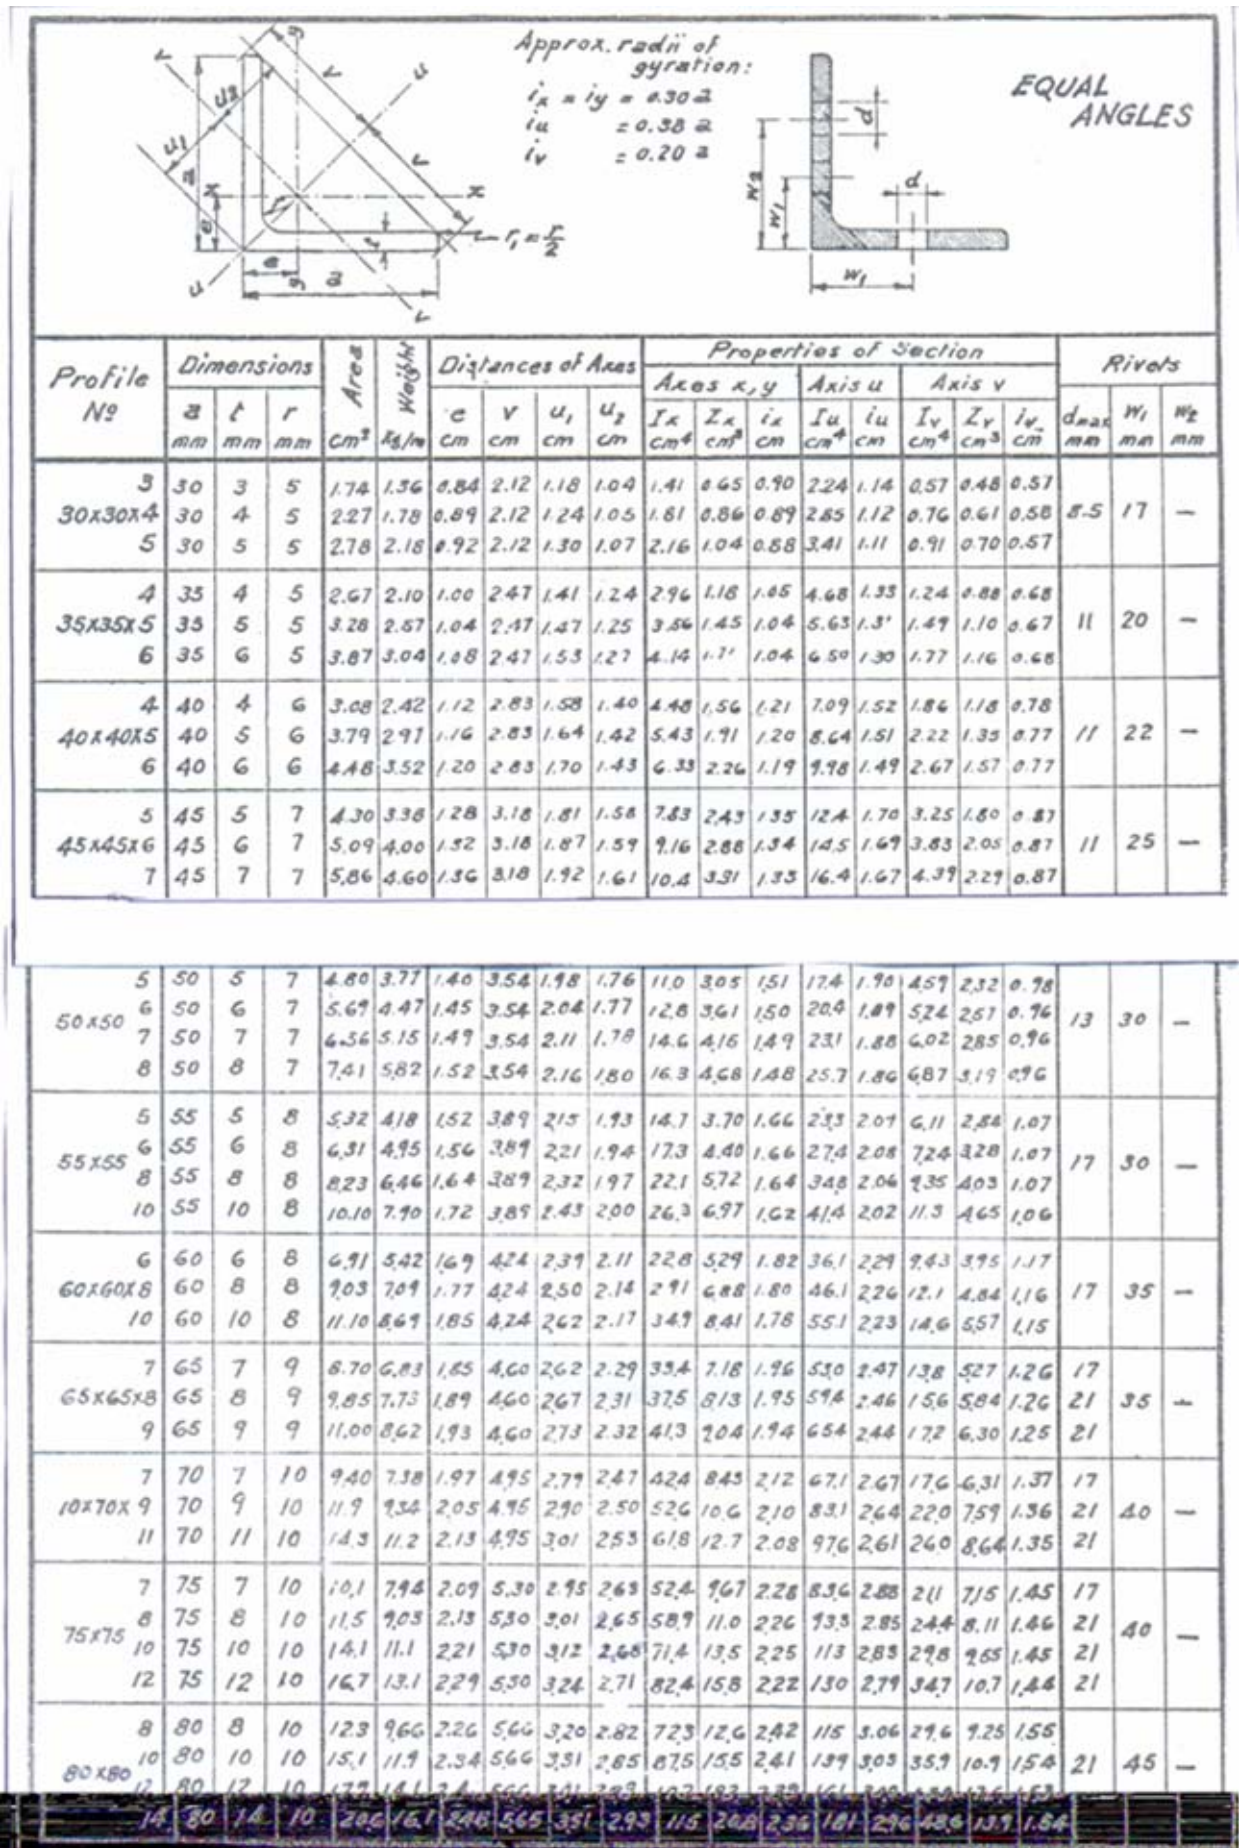 Approx. radii of
gyration:
ix = iy = 0.30 a
iu = 0.38 a
iv = 0.20 a
EQUAL
ANGLES
r1 = r/2
Profile Dimensions Area Weight Distances of Axes Properties of Section Rivets
Axes x, y Axis u Axis v
Nº a t r e v u1 u2 Ix Zx ix Iu iu Iv Zv iv dmax W1 W2
mm mm mm cm² kg/m cm cm cm cm cm⁴ cm³ cm cm⁴ cm cm⁴ cm³ cm mm mm mm
3 30 3 5 1.74 1.36 0.84 2.12 1.18 1.04 1.41 0.65 0.90 2.24 1.14 0.57 0.48 0.57
30x30x4 30 4 5 2.27 1.78 0.89 2.12 1.24 1.05 1.81 0.86 0.89 2.85 1.12 0.76 0.61 0.58 8.5 17 —
5 30 5 5 2.78 2.18 0.92 2.12 1.30 1.07 2.16 1.04 0.88 3.41 1.11 0.91 0.70 0.57
4 35 4 5 2.67 2.10 1.00 2.47 1.41 1.24 2.96 1.18 1.05 4.68 1.33 1.24 0.88 0.68
35x35x5 35 5 5 3.28 2.57 1.04 2.47 1.47 1.25 3.56 1.45 1.04 5.63 1.49 1.10 0.67 11 20 —
6 35 6 5 3.87 3.04 1.08 2.47 1.53 1.27 4.14 1.04 6.50 1.30 1.77 1.16 0.68
4 40 4 6 3.08 2.42 1.12 2.83 1.58 1.40 4.48 1.56 1.21 7.09 1.52 1.86 1.18 0.78
40x40x5 40 5 6 3.79 2.97 1.16 2.83 1.64 1.42 5.43 1.91 1.20 8.64 1.51 2.22 1.35 0.77 11 22 —
6 40 6 6 4.48 3.52 1.20 2.83 1.70 1.43 6.33 2.26 1.19 9.98 1.49 2.67 1.57 0.77
5 45 5 7 4.30 3.38 1.28 3.18 1.81 1.58 7.83 2.43 1.35 12.4 1.70 3.25 1.80 0.87
45x45x6 45 6 7 5.09 4.00 1.32 3.18 1.87 1.59 9.16 2.88 1.34 14.5 1.69 3.83 2.05 0.87 11 25 —
7 45 7 7 5.86 4.60 1.36 3.18 1.92 1.61 10.4 3.31 1.33 16.4 1.67 4.39 2.29 0.87
5 50 5 7 4.80 3.77 1.40 3.54 1.98 1.76 11.0 3.05 1.51 17.4 1.90 4.59 2.32 0.98
50x50 6 50 6 7 5.69 4.47 1.45 3.54 2.04 1.77 12.8 3.61 1.50 20.4 1.89 5.24 2.57 0.96 13 30 —
7 50 7 7 6.56 5.15 1.49 3.54 2.11 1.78 14.6 4.15 1.49 23.1 1.88 6.02 2.85 0.96
8 50 8 7 7.41 5.82 1.52 3.54 2.16 1.80 16.3 4.68 1.48 25.7 1.86 6.87 3.19 0.96
5 55 5 8 5.32 4.18 1.52 3.89 2.15 1.93 14.7 3.70 1.66 23.3 2.09 6.11 2.84 1.07
55x55 6 55 6 8 6.31 4.95 1.56 3.89 2.21 1.94 17.3 4.40 1.66 27.4 2.08 7.24 3.28 1.07 17 30 —
8 55 8 8 8.23 6.46 1.64 3.89 2.32 1.97 22.1 5.72 1.64 34.8 2.06 9.35 4.03 1.07
10 55 10 8 10.10 7.90 1.72 3.89 2.43 2.00 26.3 6.97 1.62 41.4 2.02 11.3 4.65 1.06
6 60 6 8 6.91 5.42 1.69 4.24 2.39 2.11 22.8 5.29 1.82 36.1 2.29 9.43 3.95 1.17
60x60x8 60 8 8 9.03 7.09 1.77 4.24 2.50 2.14 29.1 6.88 1.80 46.1 2.26 12.1 4.84 1.16 17 35 —
10 60 10 8 11.10 8.69 1.85 4.24 2.62 2.17 34.9 8.41 1.78 55.1 2.23 14.6 5.57 1.15
7 65 7 9 8.70 6.83 1.85 4.60 2.62 2.29 33.4 7.18 1.96 53.0 2.47 13.8 5.27 1.26 17
65x65x8 65 8 9 9.85 7.73 1.89 4.60 2.67 2.31 37.5 8.13 1.95 59.4 2.46 15.6 5.84 1.26 21 35 —
9 65 9 9 11.00 8.62 1.93 4.60 2.73 2.32 41.3 9.04 1.94 65.4 2.44 17.2 6.30 1.25 21
7 70 7 10 9.40 7.38 1.97 4.95 2.79 2.47 42.4 8.43 2.12 67.1 2.67 17.6 6.31 1.37 17
10x70x 9 70 9 10 11.9 9.34 2.05 4.95 2.90 2.50 52.6 10.6 2.10 83.1 2.64 22.0 7.59 1.36 21 40 —
11 70 11 10 14.3 11.2 2.13 4.95 3.01 2.53 61.8 12.7 2.08 97.6 2.61 26.0 8.64 1.35 21
7 75 7 10 10.1 7.94 2.09 5.30 2.95 2.63 52.4 9.67 2.28 83.6 2.88 21.1 7.15 1.45 17
75x75 8 75 8 10 11.5 9.03 2.13 5.30 3.01 2.65 58.9 11.0 2.26 93.3 2.85 24.4 8.11 1.46 21 40 —
10 75 10 10 14.1 11.1 2.21 5.30 3.12 2.68 71.4 13.5 2.25 113 2.83 29.8 9.55 1.45 21
12 75 12 10 16.7 13.1 2.29 5.30 3.24 2.71 82.4 15.8 2.22 130 2.79 34.7 10.7 1.44 21
8 80 8 10 12.3 9.66 2.26 5.66 3.20 2.82 72.3 12.6 2.42 115 3.06 29.6 9.25 1.55
80x80 10 80 10 10 15.1 11.9 2.34 5.66 3.31 2.85 87.5 15.5 2.41 139 3.03 35.9 10.9 1.54 21 45 —
12 80 12 10
14 80 14 10 20.6 16.1 2.48 5.65 3.51 2.93 115 20.8 2.36 181 2.96 48.6 13.9 1.54